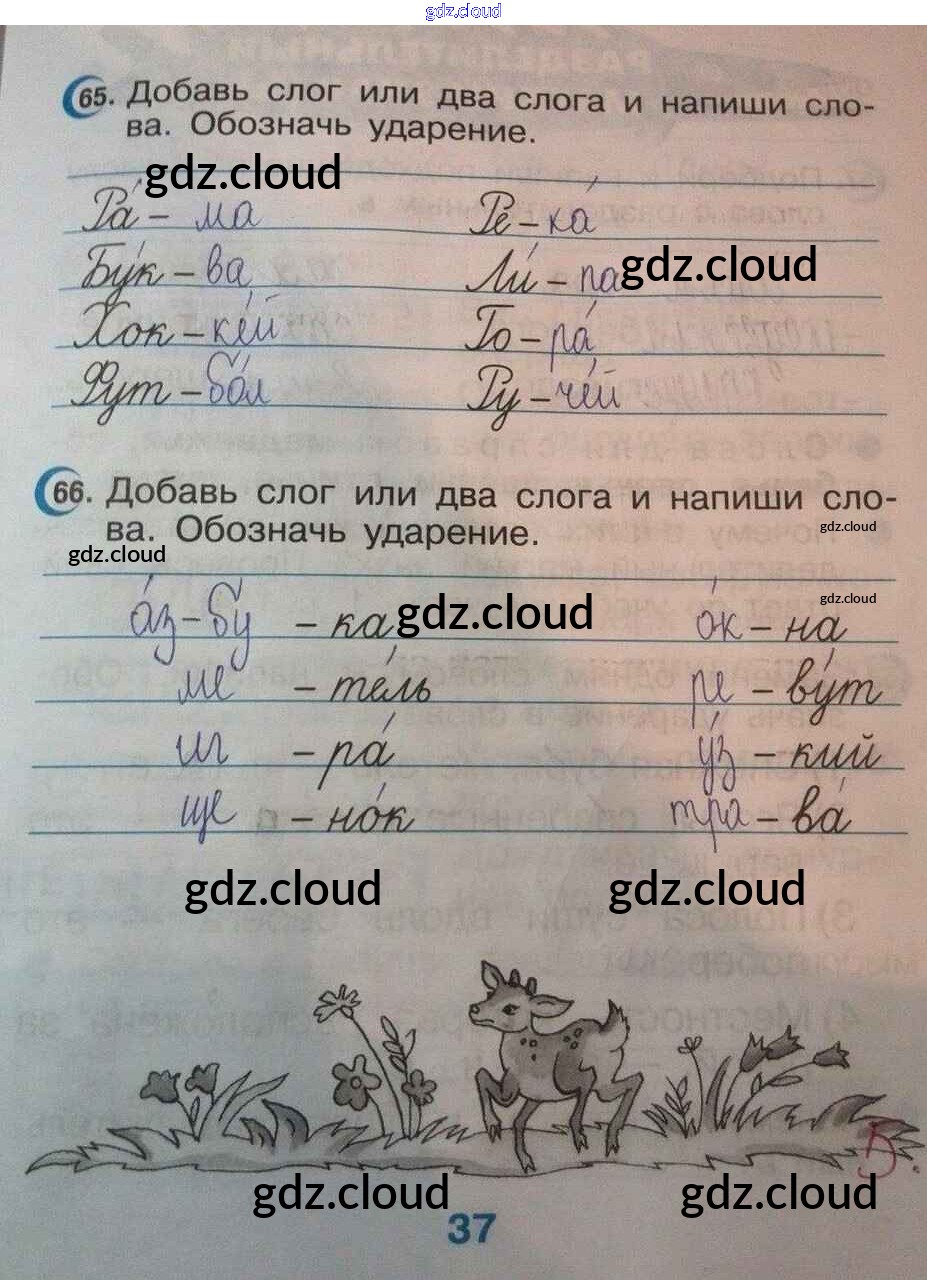 gdz.cloud
65. Добавь слог или два слога и напиши сло-
ва. Обозначь ударение.
gdz.cloud
Ра́ – ма Ре – ка́
Бу́к – ва Ли́ – па gdz.cloud
Хок – ке́й Го – ра́
Фут – бо́л Ру – че́й
66. Добавь слог или два слога и напиши сло-
ва. Обозначь ударение.
gdz.cloud
gdz.cloud
а́з – бу – ка gdz.cloud о́к – на gdz.cloud
ме – те́ль ре – ву́т
иг – ра́ у́з – кий
ще – но́к тра – ва́
gdz.cloud gdz.cloud
5
gdz.cloud gdz.cloud
37